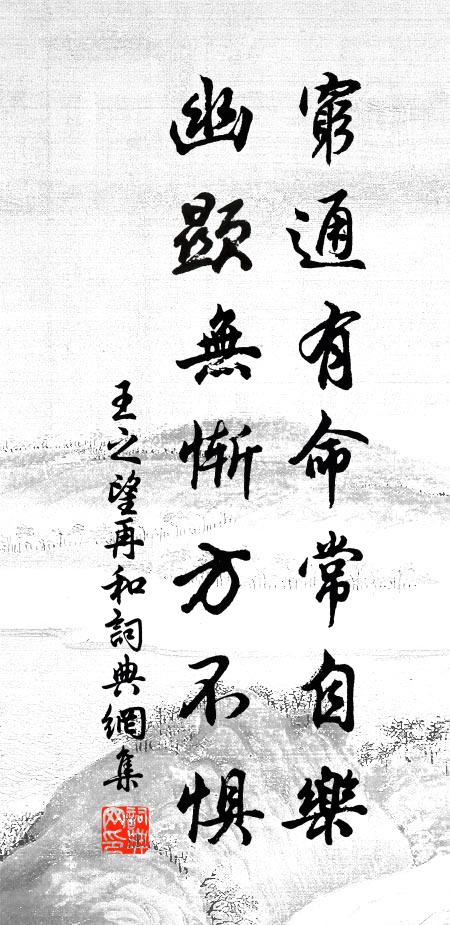 窮通有命常自樂
幽顯無慚方不懼
王之望再和詞典網集